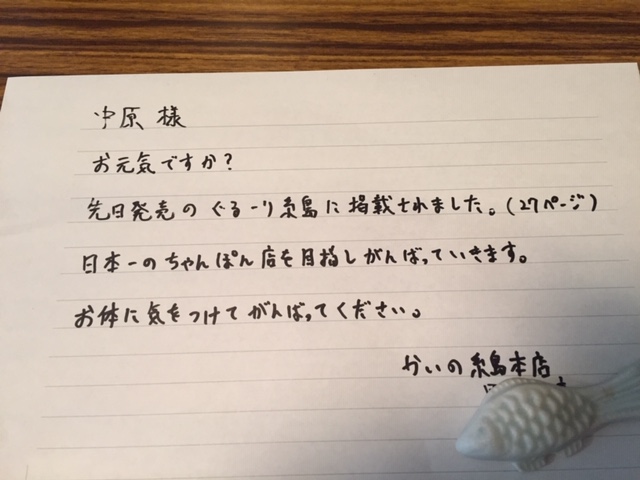 中原 様
お元気ですか?
先日発売の ぐるーり糸島に掲載されました。(27ページ)
日本一のちゃんぽん店を目指しがんばっていきます。
お体に気をつけてがんばってください。
かいの糸島本店